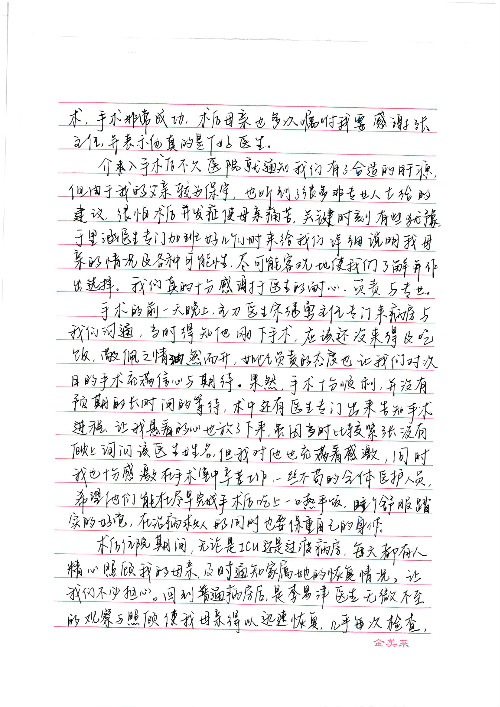 术,手术非常成功,术后母亲也多次嘱咐我要感谢张
主任,并表示他真的是个好医生。
介入手术后不久医院就通知我们有了合适的肝源,
但由于我的父亲较为保守,也听到了很多非专业人士给的
建议,很怕术后并发症使母亲痛苦,关键时刻有些犹豫
于里涵医生专门加班好几小时来给我们详细说明我母
亲的情况及各种可能性,尽可能客观地使我们了解并作
出选择。我们真的十分感谢于医生的耐心、负责与专业。
手术的前一天晚上,主刀医生宋继勇主任专门来病房与
我们沟通,当时得知他刚下手术,应该还没来得及吃
饭,敬佩之情油然而升,如此负责的态度也让我们对次
日的手术充满信心与期待。果然,手术十分顺利,并没有
预期的长时间的等待,术中还有医生专门出来告知手术
进程,让我悬着的心也放了下来,虽因当时比较紧张没有
顾上询问该医生姓名,但我对他也充满着感激,同时
我也十分感激在手术室中辛苦工作一丝不苟的全体医护人员,
希望他们能在尽早完成手术后吃上一口热乎饭,睡个舒服踏
实的好觉,在治病救人的同时也要保重自己的身体。
术后住院期间,无论是ICU还是过渡病房,每天都有人
精心照顾我的母亲,及时通知家属她的恢复情况,让
我们不必担心。回到普通病房后,是李昂津医生无微不至
的观察与照顾使我母亲得以迅速恢复,几乎每次检查,